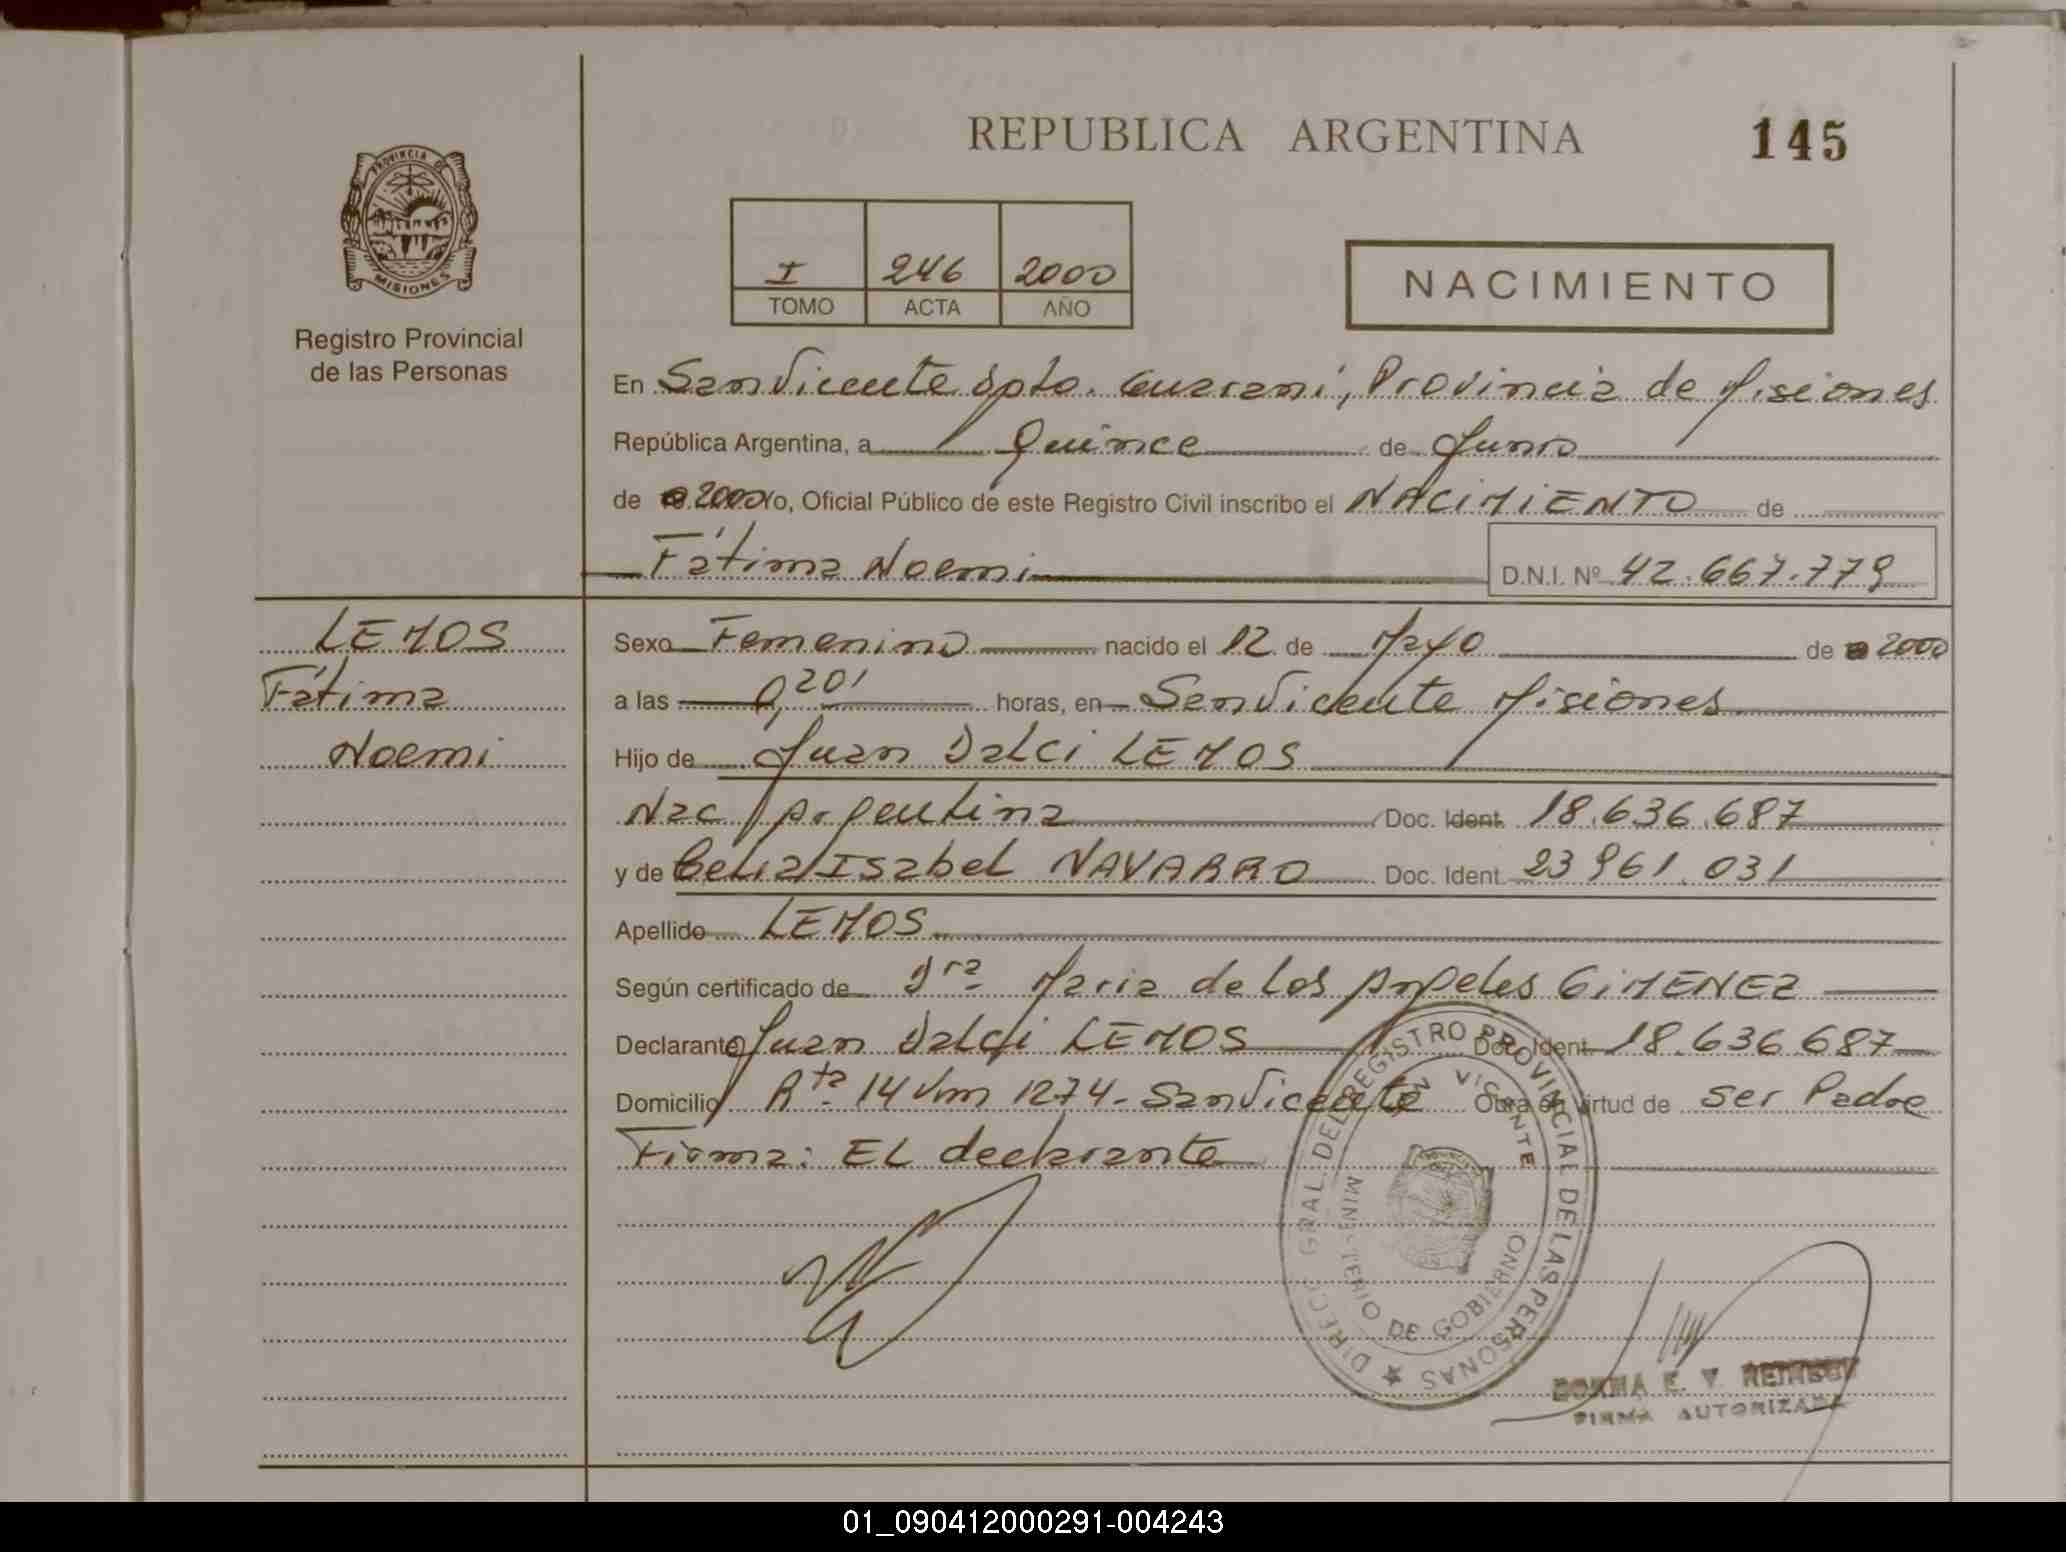 REPUBLICA ARGENTINA
145
PROVINCIA DE
MISIONES
Registro Provincial
de las Personas
I 246 2000
TOMO ACTA AÑO
NACIMIENTO
En San Vicente Dpto. Guaraní, Provincia de Misiones
República Argentina, a Quince de Junio
de 2000 Yo, Oficial Público de este Registro Civil inscribo el NACIMIENTO de
Fátima Noemi
D.N.I. Nº 42.667.779
LEMOS
Fátima
Noemi
Sexo Femenino nacido el 12 de Mayo de 2000
a las 0,20' horas, en San Vicente Misiones
Hijo de Juan Dalci LEMOS
Nac Argentina Doc. Ident. 18.636.687
y de Celia Isabel NAVARRO Doc. Ident. 23961.031
Apellido LEMOS
Según certificado de Dra Maria de los Angeles GIMENEZ
Declarante Juan Dalci LEMOS Doc. Ident. 18.636.687
Domicilio Rta 14 Km 1274- San Vicente Obra en virtud de ser Padre
Firma: EL declarante
DIRECC. GRAL. DEL REGISTRO PROVINCIAL DE LAS PERSONAS
SAN VICENTE
MINISTERIO DE GOBIERNO
E. V.
FIRMA AUTORIZADA
01_090412000291-004243